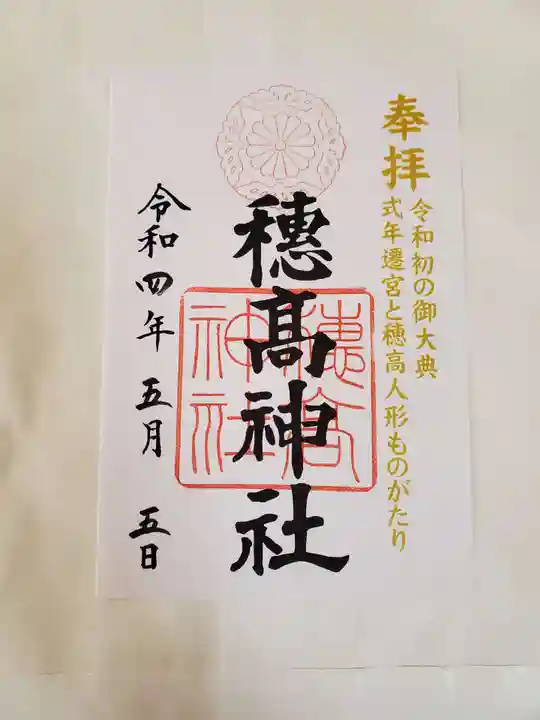 奉拝
令和初の御大典
式年遷宮と穂高人形ものがたり
穗髙神社
穗高
神社
令和四年 五月 五日